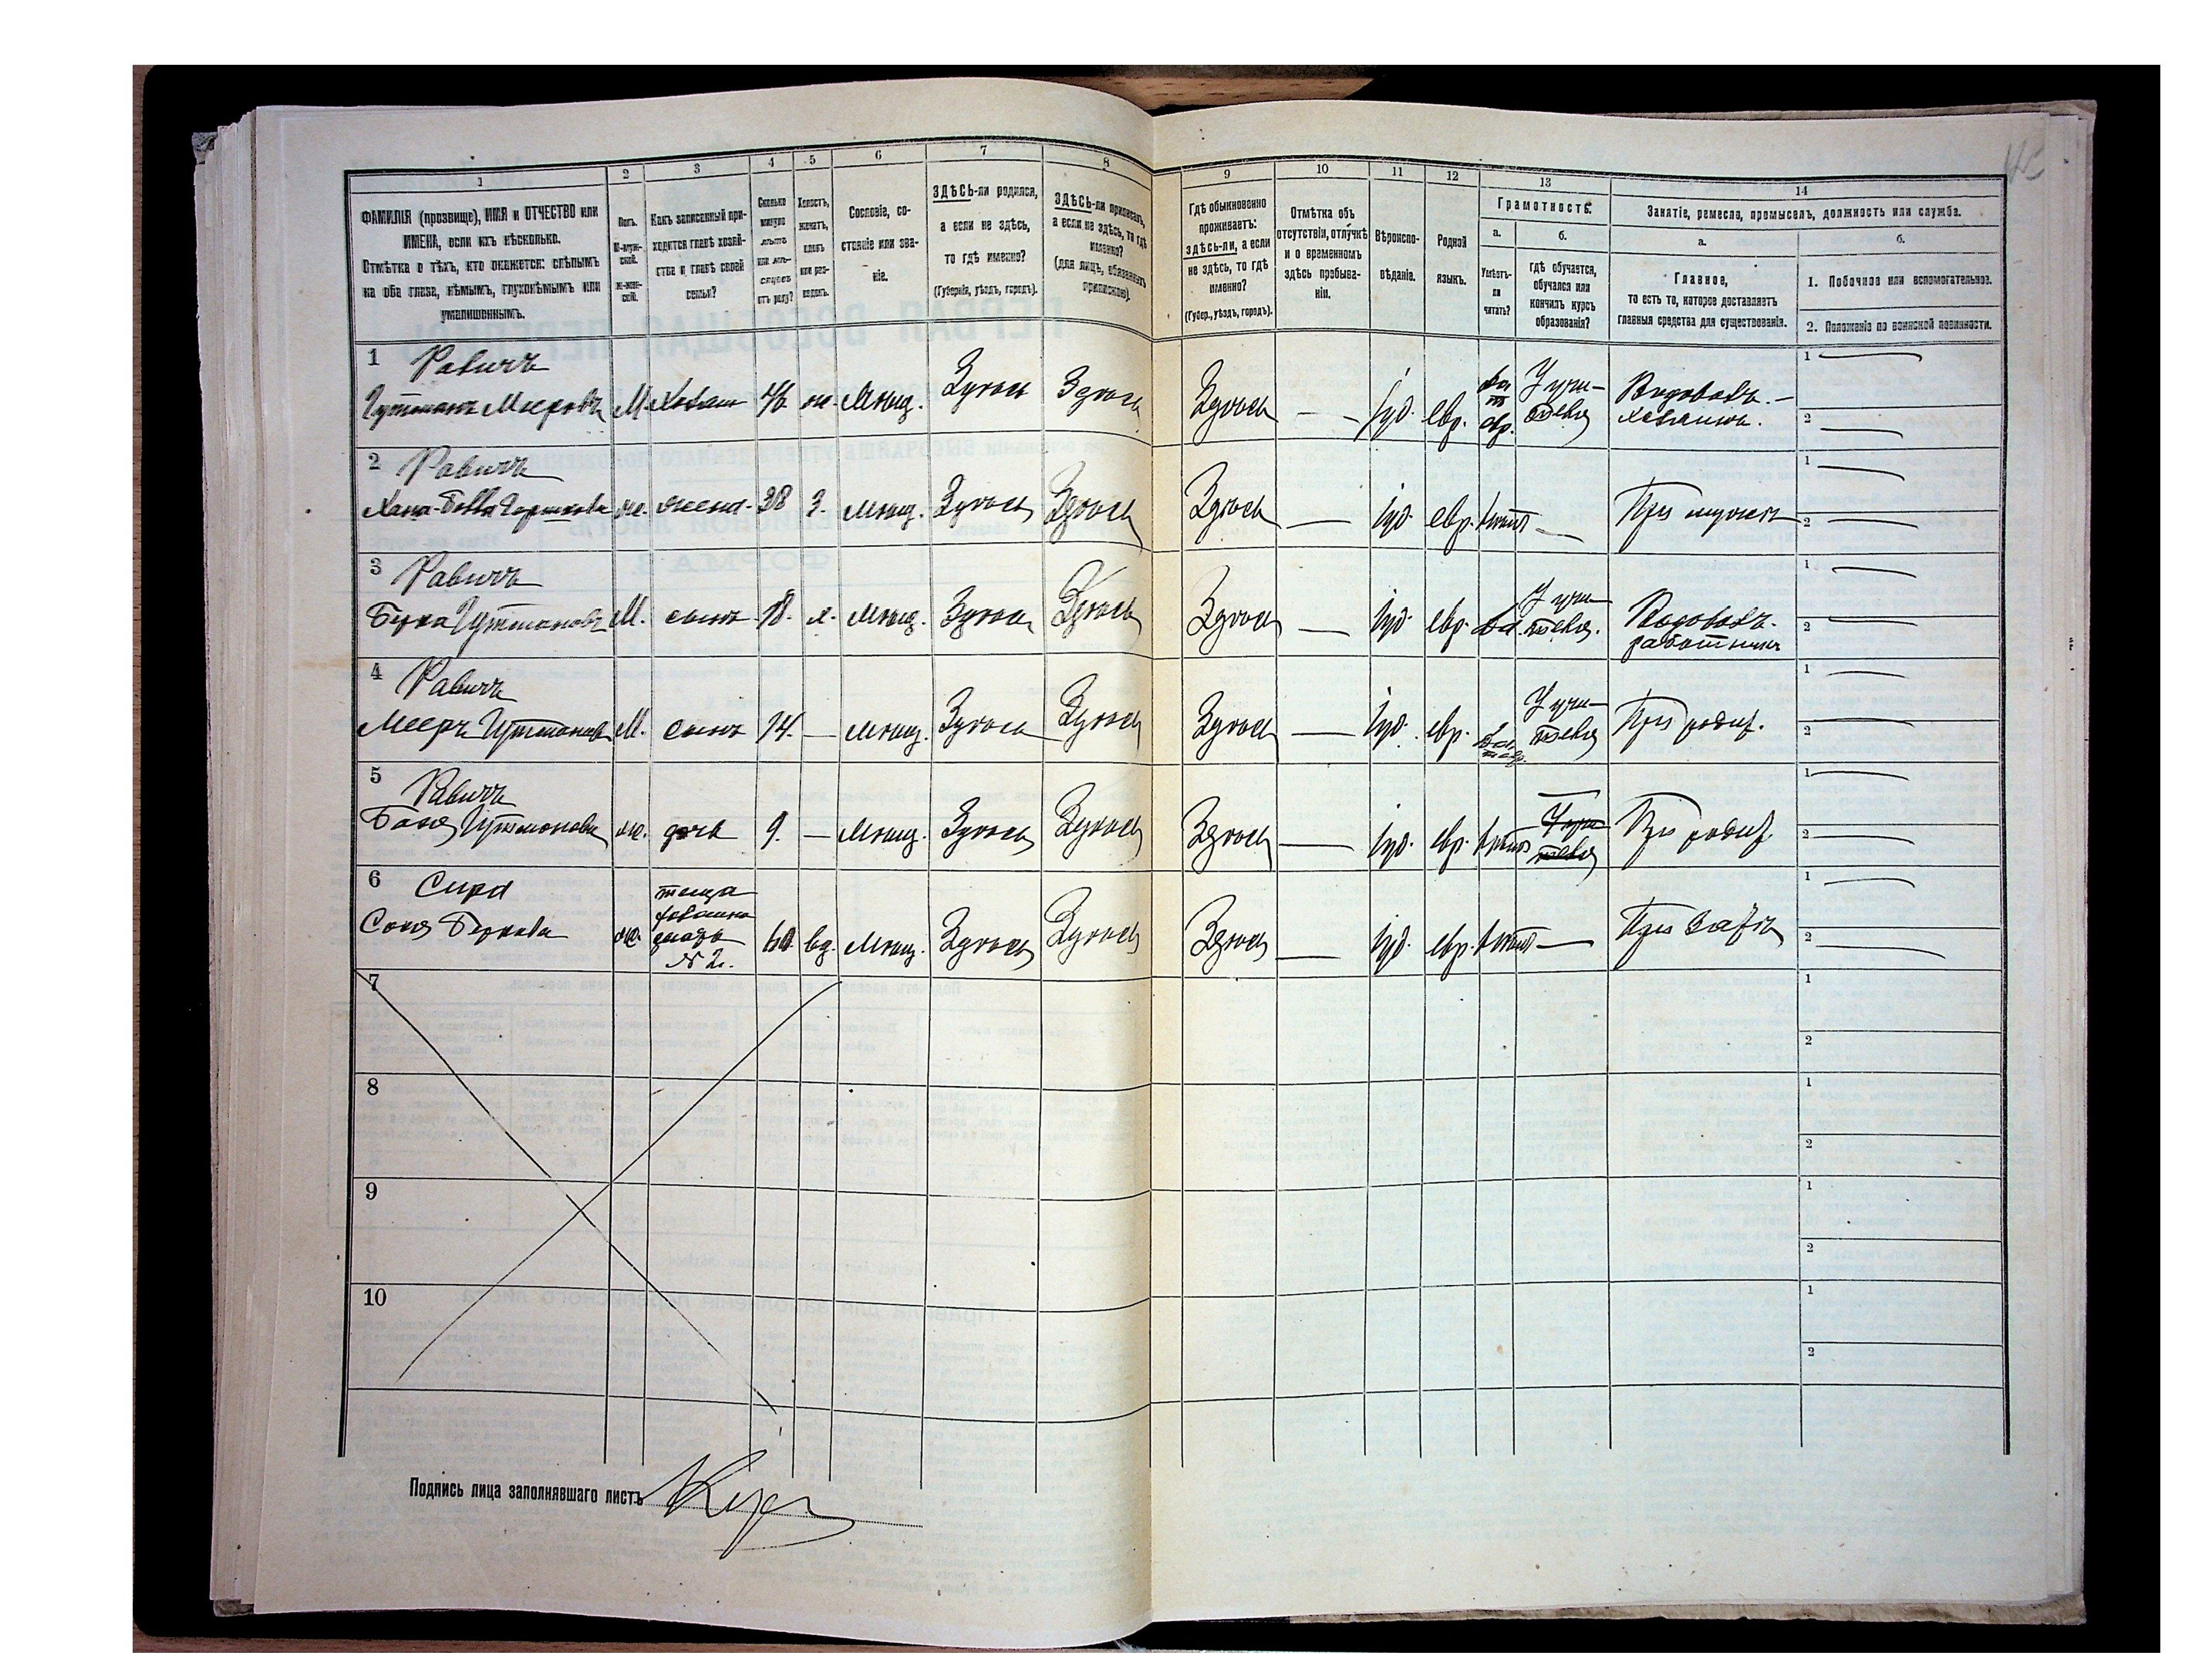 1 2 3 4 5 6 7 8 9 10 11 12 13 14
ФАМИЛІЯ (прозвище), ИМЯ и ОТЧЕСТВО или
ИМЕНА, если ихъ нѣсколько.
Отмѣтка о тѣхъ, кто окажется: слѣпымъ
на оба глаза, нѣмымъ, глухонѣмымъ или
умалишеннымъ.
Полъ.
М-муж-
ской.
Ж-жен-
скій.
Какъ записанный при-
ходится главѣ хозяй-
ства и главѣ своей
семьи?
Сколько
минуло
лѣтъ
или мѣ-
сяцевъ
отъ роду?
Холостъ,
женатъ,
вдовъ
или раз-
веденъ.
Сословіе, со-
стояніе или зва-
ніе.
ЗДѢСЬ-ли родился,
а если не здѣсь,
то гдѣ именно?
(Губернія, уѣздъ, городъ).
ЗДѢСЬ-ли приписанъ,
а если не здѣсь, то гдѣ
именно?
(для лицъ, обязанныхъ
припискою).
Гдѣ обыкновенно
проживаетъ:
здѣсь-ли, а если
не здѣсь, то гдѣ
именно?
(Губер., уѣздъ, городъ).
Отмѣтка объ
отсутствіи, отлучкѣ
и о временномъ
здѣсь пребыва-
ніи.
Вѣроиспо-
вѣданіе.
Родной
языкъ.
Грамотность.
а. б.
Умѣетъ-
ли
читать?
гдѣ обучается,
обучался или
кончилъ курсъ
образованія?
Занятіе, ремесло, промыселъ, должность или служба.
а. б.
Главное,
то есть то, которое доставляетъ
главныя средства для существованія.
1. Побочное или вспомогательное.
2. Положеніе по воинской повинности.
1 Равичъ
Гутманъ Мееровъ М. Хозяин ж. Мѣщ. Здѣсь Здѣсь Здѣсь — Іуд. евр. да Учи-
теля Водовозъ.—
хозяинъ.
1 —
2 —
2 Равичъ
Хана- ж. жена 38 З. Мѣщ. Здѣсь Здѣсь Здѣсь — Іуд. евр. нѣтъ — При мужѣ
1 —
2 —
3 Равичъ
Берка Гутмановъ М. сынъ 18. х. Мѣщ. Здѣсь Здѣсь Здѣсь — Іуд. евр. да Учи-
теля. Водовозъ.
работникъ
1 —
2 —
4 Равичъ
Мееръ Гутмановъ М. сынъ 14. — Мѣщ. Здѣсь Здѣсь Здѣсь — Іуд. евр. да Учи-
теля При родит.
1 —
2 —
5 Равичъ
Бася Гутманова ж. дочь 9. — Мѣщ. Здѣсь Здѣсь Здѣсь — Іуд. евр. нѣтъ — Учи-
теля При родит.
1 —
2 —
6 Сира
Соня Беркова ж. теща
хозяина
мать
№ 2. 60 вд. Мѣщ. Здѣсь Здѣсь Здѣсь — Іуд. евр. нѣтъ — При зятѣ
1 —
2 —
7 1
2
8 1
2
9 1
2
10 1
2
Подпись лица заполнявшаго листъ